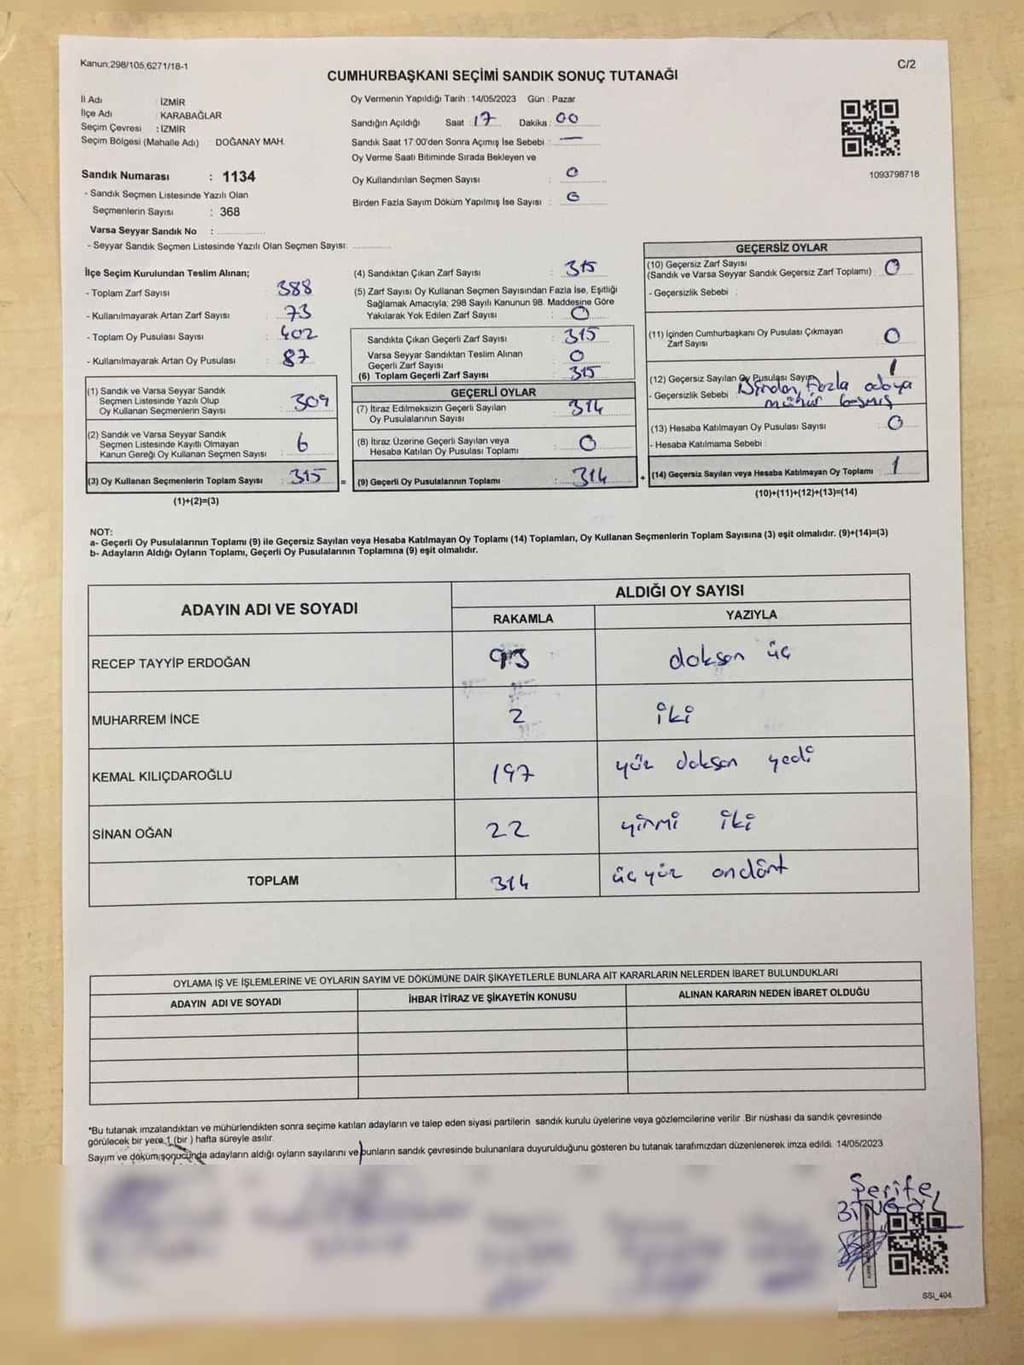 Kanun:298/105,6271/18-1
C/2
CUMHURBAŞKANI SEÇİMİ SANDIK SONUÇ TUTANAĞI
İl Adı : İZMİR
İlçe Adı : KARABAĞLAR
Seçim Çevresi : İZMİR
Seçim Bölgesi (Mahalle Adı) DOĞANAY MAH.
Sandık Numarası : 1134
- Sandık Seçmen Listesinde Yazılı Olan
Seçmenlerin Sayısı : 368
Varsa Seyyar Sandık No :
- Seyyar Sandık Seçmen Listesinde Yazılı Olan Seçmen Sayısı:
Oy Vermenin Yapıldığı Tarih : 14/05/2023 Gün : Pazar
Sandığın Açıldığı Saat : 17 Dakika : 00
Sandık Saat 17:00'den Sonra Açımış İse Sebebi : —
Oy Verme Saati Bitiminde Sırada Bekleyen ve
Oy Kullandırılan Seçmen Sayısı : 0
Birden Fazla Sayım Döküm Yapılmış İse Sayısı : 0
1093798718
İlçe Seçim Kurulundan Teslim Alınan;
- Toplam Zarf Sayısı : 388
- Kullanılmayarak Artan Zarf Sayısı : 73
- Toplam Oy Pusulası Sayısı : 402
- Kullanılmayarak Artan Oy Pusulası : 87
(1) Sandık ve Varsa Seyyar Sandık
Seçmen Listesinde Yazılı Olup
Oy Kullanan Seçmenlerin Sayısı : 309
(2) Sandık ve Varsa Seyyar Sandık
Seçmen Listesinde Kayıtlı Olmayan
Kanun Gereği Oy Kullanan Seçmen Sayısı : 6
(3) Oy Kullanan Seçmenlerin Toplam Sayısı : 315 =
(1)+(2)=(3)
(4) Sandıktan Çıkan Zarf Sayısı : 315
(5) Zarf Sayısı Oy Kullanan Seçmen Sayısından Fazla İse, Eşitliği
Sağlamak Amacıyla; 298 Sayılı Kanunun 98. Maddesine Göre
Yakılarak Yok Edilen Zarf Sayısı : 0
Sandıkta Çıkan Geçerli Zarf Sayısı : 315
Varsa Seyyar Sandıktan Teslim Alınan
Geçerli Zarf Sayısı : 0
(6) Toplam Geçerli Zarf Sayısı : 315
GEÇERLİ OYLAR
(7) İtiraz Edilmeksizin Geçerli Sayılan
Oy Pusulalarının Sayısı : 314
(8) İtiraz Üzerine Geçerli Sayılan veya
Hesaba Katılan Oy Pusulası Toplamı : 0
(9) Geçerli Oy Pusulalarının Toplamı : 314 +
GEÇERSİZ OYLAR
(10) Geçersiz Zarf Sayısı
(Sandık ve Varsa Seyyar Sandık Geçersiz Zarf Toplamı) : 0
- Geçersizlik Sebebi :
(11) İçinden Cumhurbaşkanı Oy Pusulası Çıkmayan
Zarf Sayısı : 0
(12) Geçersiz Sayılan Oy Pusulası Sayısı : 1
- Geçersizlik Sebebi : Birden Fazla adaya
mühür basmış
(13) Hesaba Katılmayan Oy Pusulası Sayısı : 0
- Hesaba Katılmama Sebebi :
(14) Geçersiz Sayılan veya Hesaba Katılmayan Oy Toplamı : 1
(10)+(11)+(12)+(13)=(14)
NOT:
a- Geçerli Oy Pusulalarının Toplamı (9) ile Geçersiz Sayılan veya Hesaba Katılmayan Oy Toplamı (14) Toplamları, Oy Kullanan Seçmenlerin Toplam Sayısına (3) eşit olmalıdır. (9)+(14)=(3)
b- Adayların Aldığı Oyların Toplamı, Geçerli Oy Pusulalarının Toplamına (9) eşit olmalıdır.
ADAYIN ADI VE SOYADI ALDIĞI OY SAYISI
RAKAMLA YAZIYLA
RECEP TAYYİP ERDOĞAN 93 doksan üç
MUHARREM İNCE 2 iki
KEMAL KILIÇDAROĞLU 197 yüz doksan yedi
SİNAN OĞAN 22 yirmi iki
TOPLAM 314 üçyüz ondört
OYLAMA İŞ VE İŞLEMLERİNE VE OYLARIN SAYIM VE DÖKÜMÜNE DAİR ŞİKAYETLERLE BUNLARA AİT KARARLARIN NELERDEN İBARET BULUNDUKLARI
ADAYIN ADI VE SOYADI İHBAR İTİRAZ VE ŞİKAYETİN KONUSU ALINAN KARARIN NEDEN İBARET OLDUĞU
*Bu tutanak imzalandıktan ve mühürlendikten sonra seçime katılan adayların ve talep eden siyasi partilerin sandık kurulu üyelerine veya gözlemcilerine verilir. Bir nüshası da sandık çevresinde
görülecek bir yere 1 (bir ) hafta süreyle asılır.
Sayım ve döküm sonucunda adayların aldığı oyların sayılarını ve bunların sandık çevresinde bulunanlara duyurulduğunu gösteren bu tutanak tarafımızdan düzenlenerek imza edildi. 14/05/2023
Şerife
BİNGÖL
SSI_404